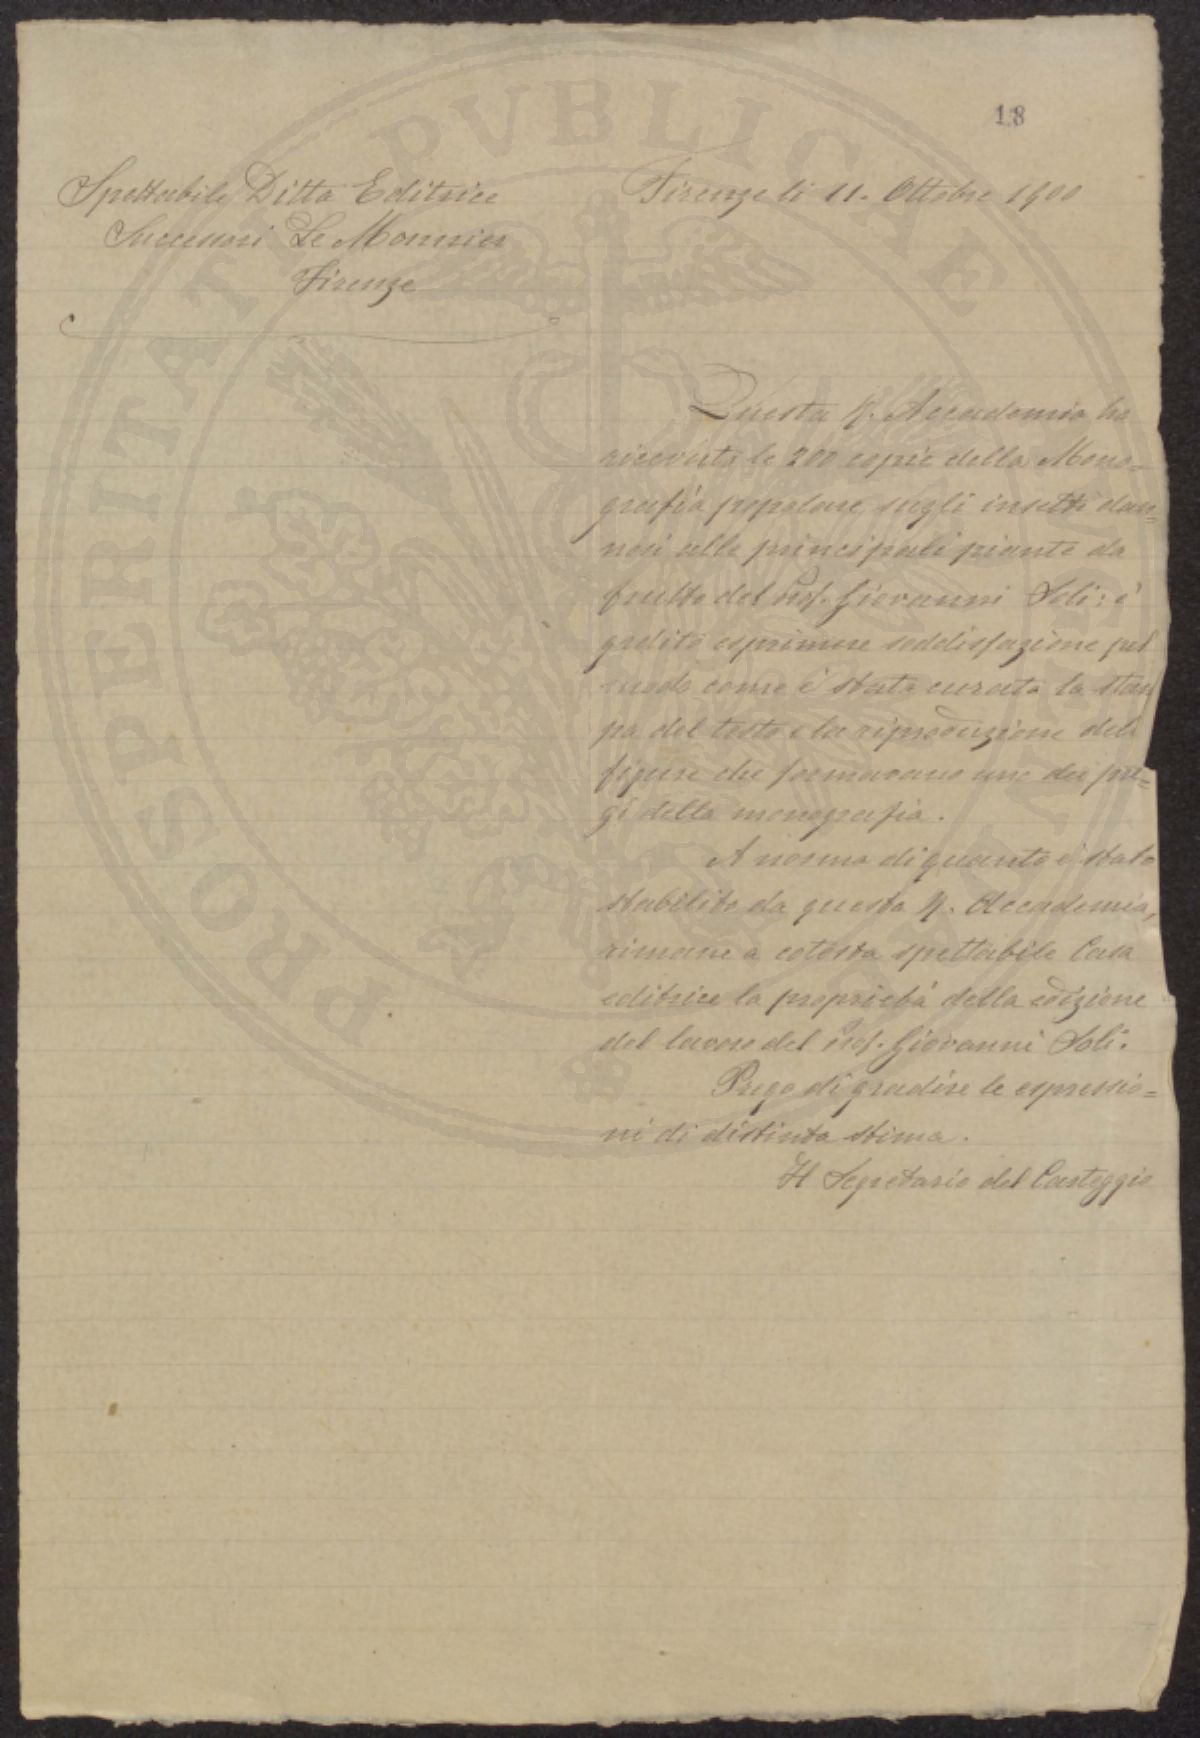 18
Spettabile Ditta Editrice
Successori Le Monnier
Firenze
Firenze li 11. Ottobre 1900
Questa R. Accademia ha
ricevuto le 200 copie della Mono-
grafia popolare sugli insetti dan-
nosi alle principali piante da
frutto del Prof. Giovanni Soli: è
gradito esprimere soddisfazione pel
modo come è stata curata la stam
pa del testo e la riproduzione dell
figure che formavano uno dei pre=
gi della monografia.
A norma di quanto è stato
stabilito da questa R. Accademia,
rimane a cotesta spettabile Casa
editrice la proprietà della edizione
del lavoro del Prof. Giovanni Soli.
Prego di gradire le espressio=
ni di distinta stima.
Il Segretario del Carteggio
PROSPERITATI PVBLICAE AVGENDAE